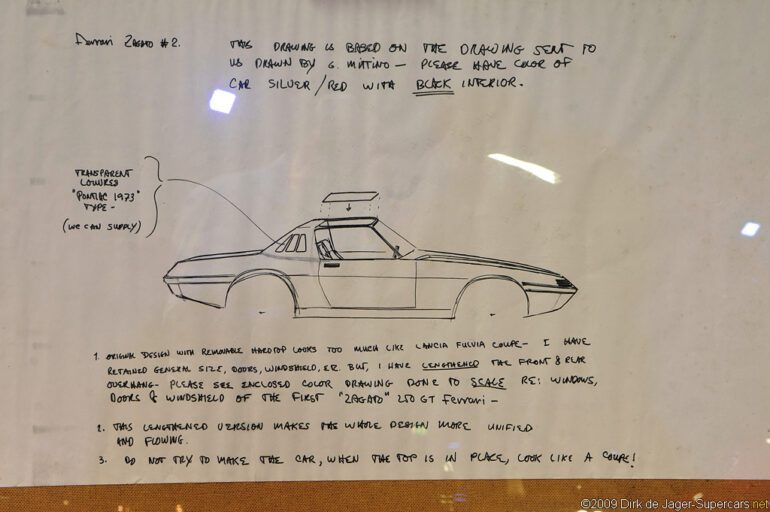 Ferrari ZAGATO #2.
THIS DRAWING IS BASED ON THE DRAWING SENT TO
US DRAWN BY G. MITTINO — PLEASE HAVE COLOR OF
CAR SILVER/RED WITH BLACK INTERIOR.
TRANSPARENT
LOUVRED
"PONTIAC 1973"
TYPE —
(WE CAN SUPPLY)
1. ORIGINAL DESIGN WITH REMOVABLE HARDTOP LOOKS TOO MUCH LIKE LANCIA FULVIA COUPE — I HAVE
RETAINED GENERAL SIZE, DOORS, WINDSHIELD, ETC. BUT, I HAVE LENGTHENED THE FRONT & REAR
OVERHANG — PLEASE SEE ENCLOSED COLOR DRAWING DONE TO SCALE RE: WINDOWS,
DOORS & WINDSHIELD OF THE FIRST "ZAGATO" 250 GT Ferrari —
2. THIS LENGTHENED VERSION MAKES THE WHOLE DESIGN MORE UNIFIED
AND FLOWING.
3. DO NOT TRY TO MAKE THE CAR, WHEN THE TOP IS IN PLACE, LOOK LIKE A COUPE!
©2009 Dirk de Jager-Supercars.net